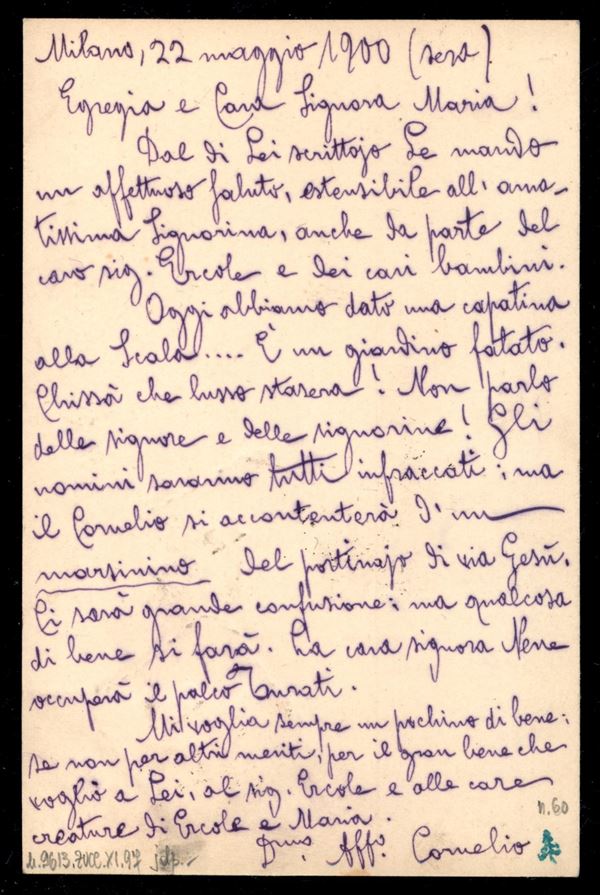 Milano, 22 maggio 1900 (sera).
Egregia e Cara Signora Maria!
Dal di Lei scrittojo Le mando
un affettuoso saluto, estensibile all'ama-
tissima Signorina, anche da parte del
caro sig. Ercole e dei cari bambini.
Oggi abbiamo dato una capatina
alla Scala.... È un giardino fatato.
Chissà che lusso stasera! Non parlo
delle signore e delle signorine! Gli
uomini saranno tutti infraccati; ma
il Cornelio si accontenterà d'un
marsinino del portinajo di via Gesù.
Ci sarà grande confusione; ma qualcosa
di bene si farà. La cara signora Nene
occuperà il palco Turati.
Mi voglia sempre un pochino di bene;
se non per altri meriti, per il gran bene che
voglio a Lei, al sig. Ercole e alle care
creature di Ercole e Maria.
Dmo. Affo. Cornelio
n. 60